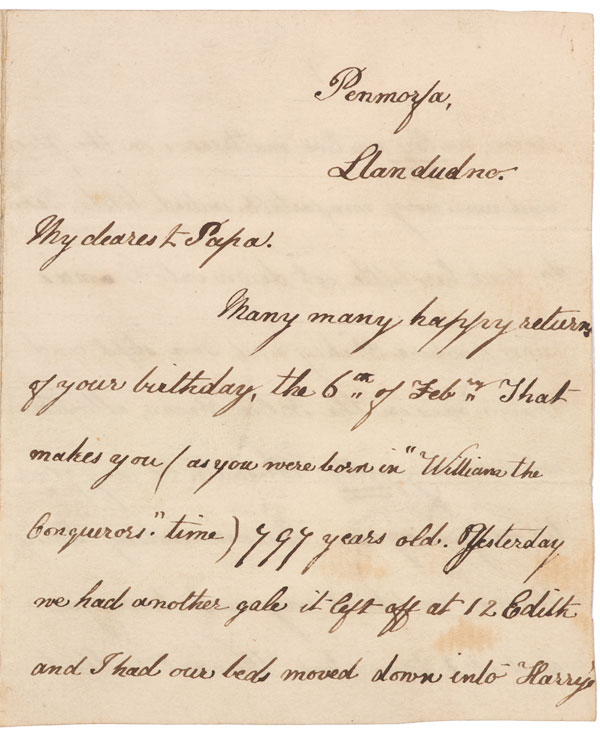 Penmorfa,
Llandudno.
My dearest Papa.
Many many happy returns
of your birthday, the 6th of Febry That
makes you (as you were born in "William the
Conquerors" time) 797 years old. Yesterday
we had another gale it left off at 12 Edith
and I had our beds moved down into "Harry's